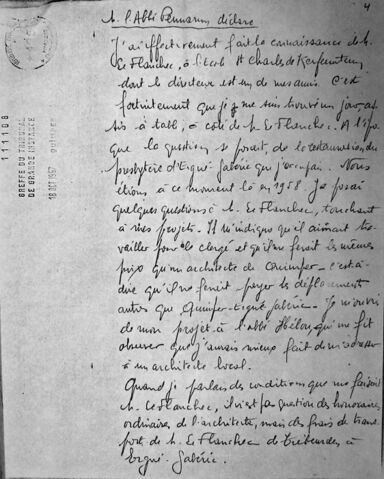 4
M. l'Abbé Pennarun déclare
J'ai effectivement fait la connaissance de M.
Le Flanchec, à l'école St Charles de Kerfeunteun,
dont le directeur est un de mes amis. C'est
fortuitement que je me suis trouvé un jour, as-
sis à table, à côté de M. Le Flanchec. A l'épo
que la question se posait de la restauration du
presbytère d'Ergué-Gabéric que j'occupais. Nous
étions à ce moment là en 1958. Je posai
quelques questions à M. Le Flanchec, touchant
à mes projets. Il m'indiqua qu'il aimait tra-
vailler pour le clergé et qu'il me ferait les mêmes
prix qu'un architecte de Quimper, c'est-à-
dire qu'il ne ferait payer les déplacements
autres que Quimper-Ergué-Gabéric. Je m'ouvris
de mon projet à l'abbé Hélou, qui me fit
observer que j'aurais mieux fait de m'adresser
à un architecte local.
Quand je parlais des conditions que me faisait
M. Le Flanchec, il n'est pas question des honoraires
ordinaires de l'architecte, mais des frais de trans
port de M. Le Flanchec de Trébeurden à
Ergué-Gabéric.
111108
GREFFE DU TRIBUNAL
DE GRANDE INSTANCE
18 OCT 1967 QUIMPER